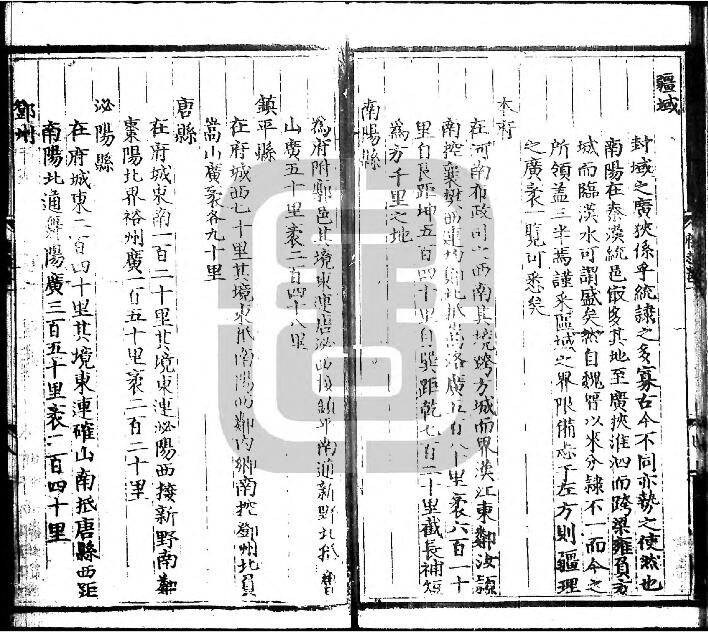 疆域
封域之廣狹係乎統隷之多寡古今不同亦勢之使然也
南陽在秦漢統邑最多其地至廣挾淮泗而跨梁雍負方
城而臨漢水可謂盛矣然自魏晉以来分隷不一而今之
所領盖三半焉謹采區域之界限備志于左方則疆理
之廣袤一覽可悉矣
本府
在河南布政司之西南其境跨方城而界漢江東鄰汝潁
南控襄樊西連均鄖北抵嵩洛廣五百八十里袤六百一十
里自艮距坤五百四十里自巽距乾七百二十里截長補短
為方千里之地
南陽縣
為府附郭邑其境東連唐泌西接鎮平南通新野北抵
山廣五十里袤二百四十八里
鎮平縣
在府城西七十里其境東抵南陽西鄰内鄉南控鄧州北負
嵩山廣袤各九十里
唐縣
在府城東南一百二十里其境東連泌陽西接新野南鄰
棗陽北界裕州廣一百五十里袤一百二十里
泌陽縣
在府城東二百四十里其境東連確山南抵唐縣西距
南陽北通舞陽廣三百五十里袤二百四十里
鄧州